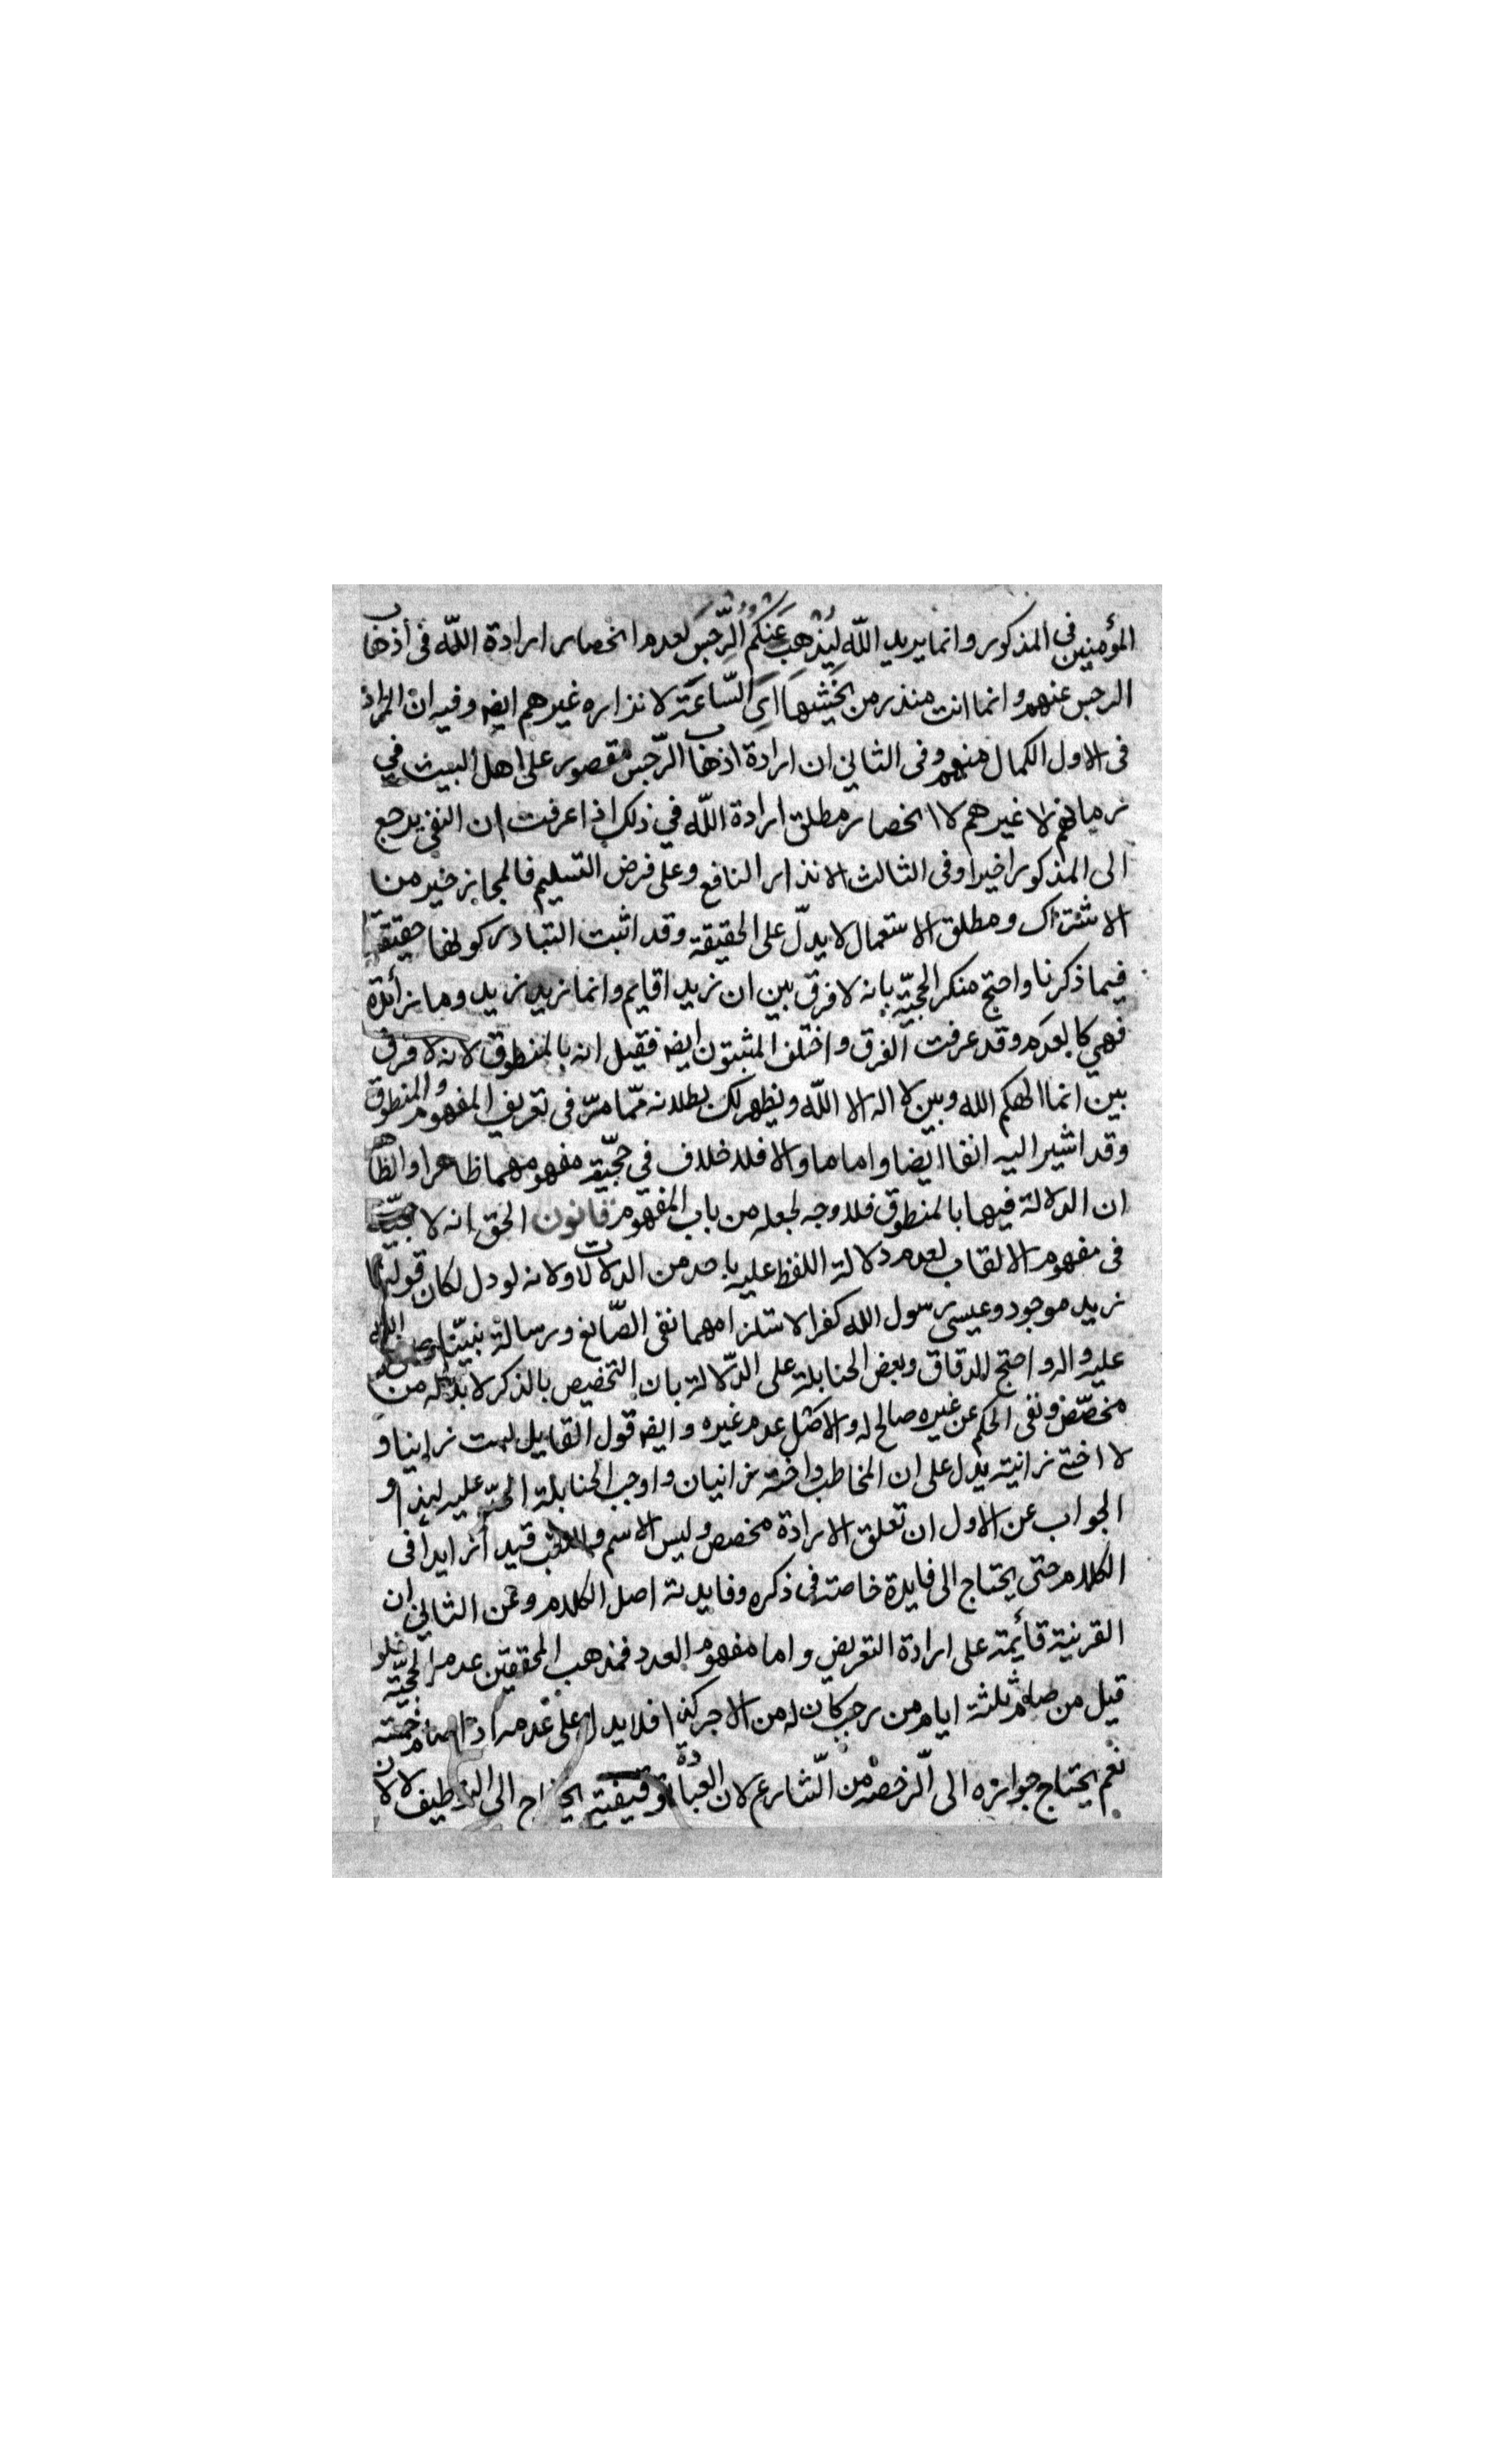 المؤمنين في المذكور وانما يريد الله ليذهب عنكم الرجس لعدم انحصار ارادة الله في اذهاب
الرجس عنهم وانما انت منذر من يخشيها اي الساعة لانذاره غيرهم ايضا وفيه ان المراد
في الاول الكمال منهم وفي الثاني ان ارادة اذهاب الرّجس مقصور على اهل البيت في
زمانهم لا غيرهم لا انحصار مطلق ارادة الله في ذلك اذا عرفت ان النفى يرجع
الى المذكور اخيرا وفى الثالث الانذار النافع وعلى فرض التسليم فالمجاز خير من
الاشتراك ومطلق الاستعمال لا يدلّ على الحقيقة وقد اثبت التبادر كونها حقيقة
فيما ذكرنا واحتج منكر الحجيّة بانه لا فرق بين ان زيدا قايم وانما زيد زيد وما زائدة
فهي كالعدم وقد عرفت الفرق واختلف المثبتون ايضا فقيل انه بالمنطوق لانه لا فرق
بين انما الهكم الله وبين لا اله الا الله ويظهر لك بطلانه ممّا مرّ في تعريف المفهوم والمنطوق
وقد اشير اليه انفا ايضا واما ما والا فلا خلاف في حجيّة مفهومهما ظاهرا والظاهر
ان الدلالة فيها بالمنطوق فلا وجه لجعله من باب المفهوم قانون الحق انه لا حجيّة
في مفهوم الالقاب لعدم دلالة اللفظ عليه باحد من الدلالات ولانه لو دل لكان قولنا
زيد موجود وعيسى رسول الله كفرا لاستلزامهما نفى الصّانع ورسالة نبيّنا صلى الله
عليه واله واحتج الدقاق وبعض الحنابلة على الدّلالة بان التخصيص بالذكر لا بد له من
مخصّص ونفى الحكم عن غيره صالح له والاصل عدم غيره وايضا قول القايل لست زانيا و
لا اختى زانية يدل على ان المخاطب واخته زانيان واوجب الحنابلة الحدّ عليه لهذا و
الجواب عن الاول ان تعلق الارادة مخصص وليس الاسم واللقب قيدا زايدا في
الكلام حتى يحتاج الى فايدة خاصة في ذكره وفايدته اصل الكلام وعن الثاني ان
القرينة قائمة على ارادة التعريض واما مفهوم العدد فمذهب المحققين عدم الحجيّة فلو
قيل من صام ثلثة ايام من رجب كان له من الاجر كذا فلا يدل على عدمه اذا صام خمسة
نعم يحتاج جوازه الى الرّخصة من الشّارع لان العبادة توقيفية يحتاج الى التوظيف لا لان